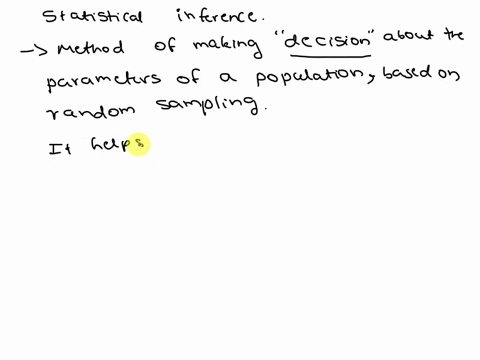 Statistical inference.
-> Method of making "decision" about the
parameters of a population, based on
random sampling.
It helps